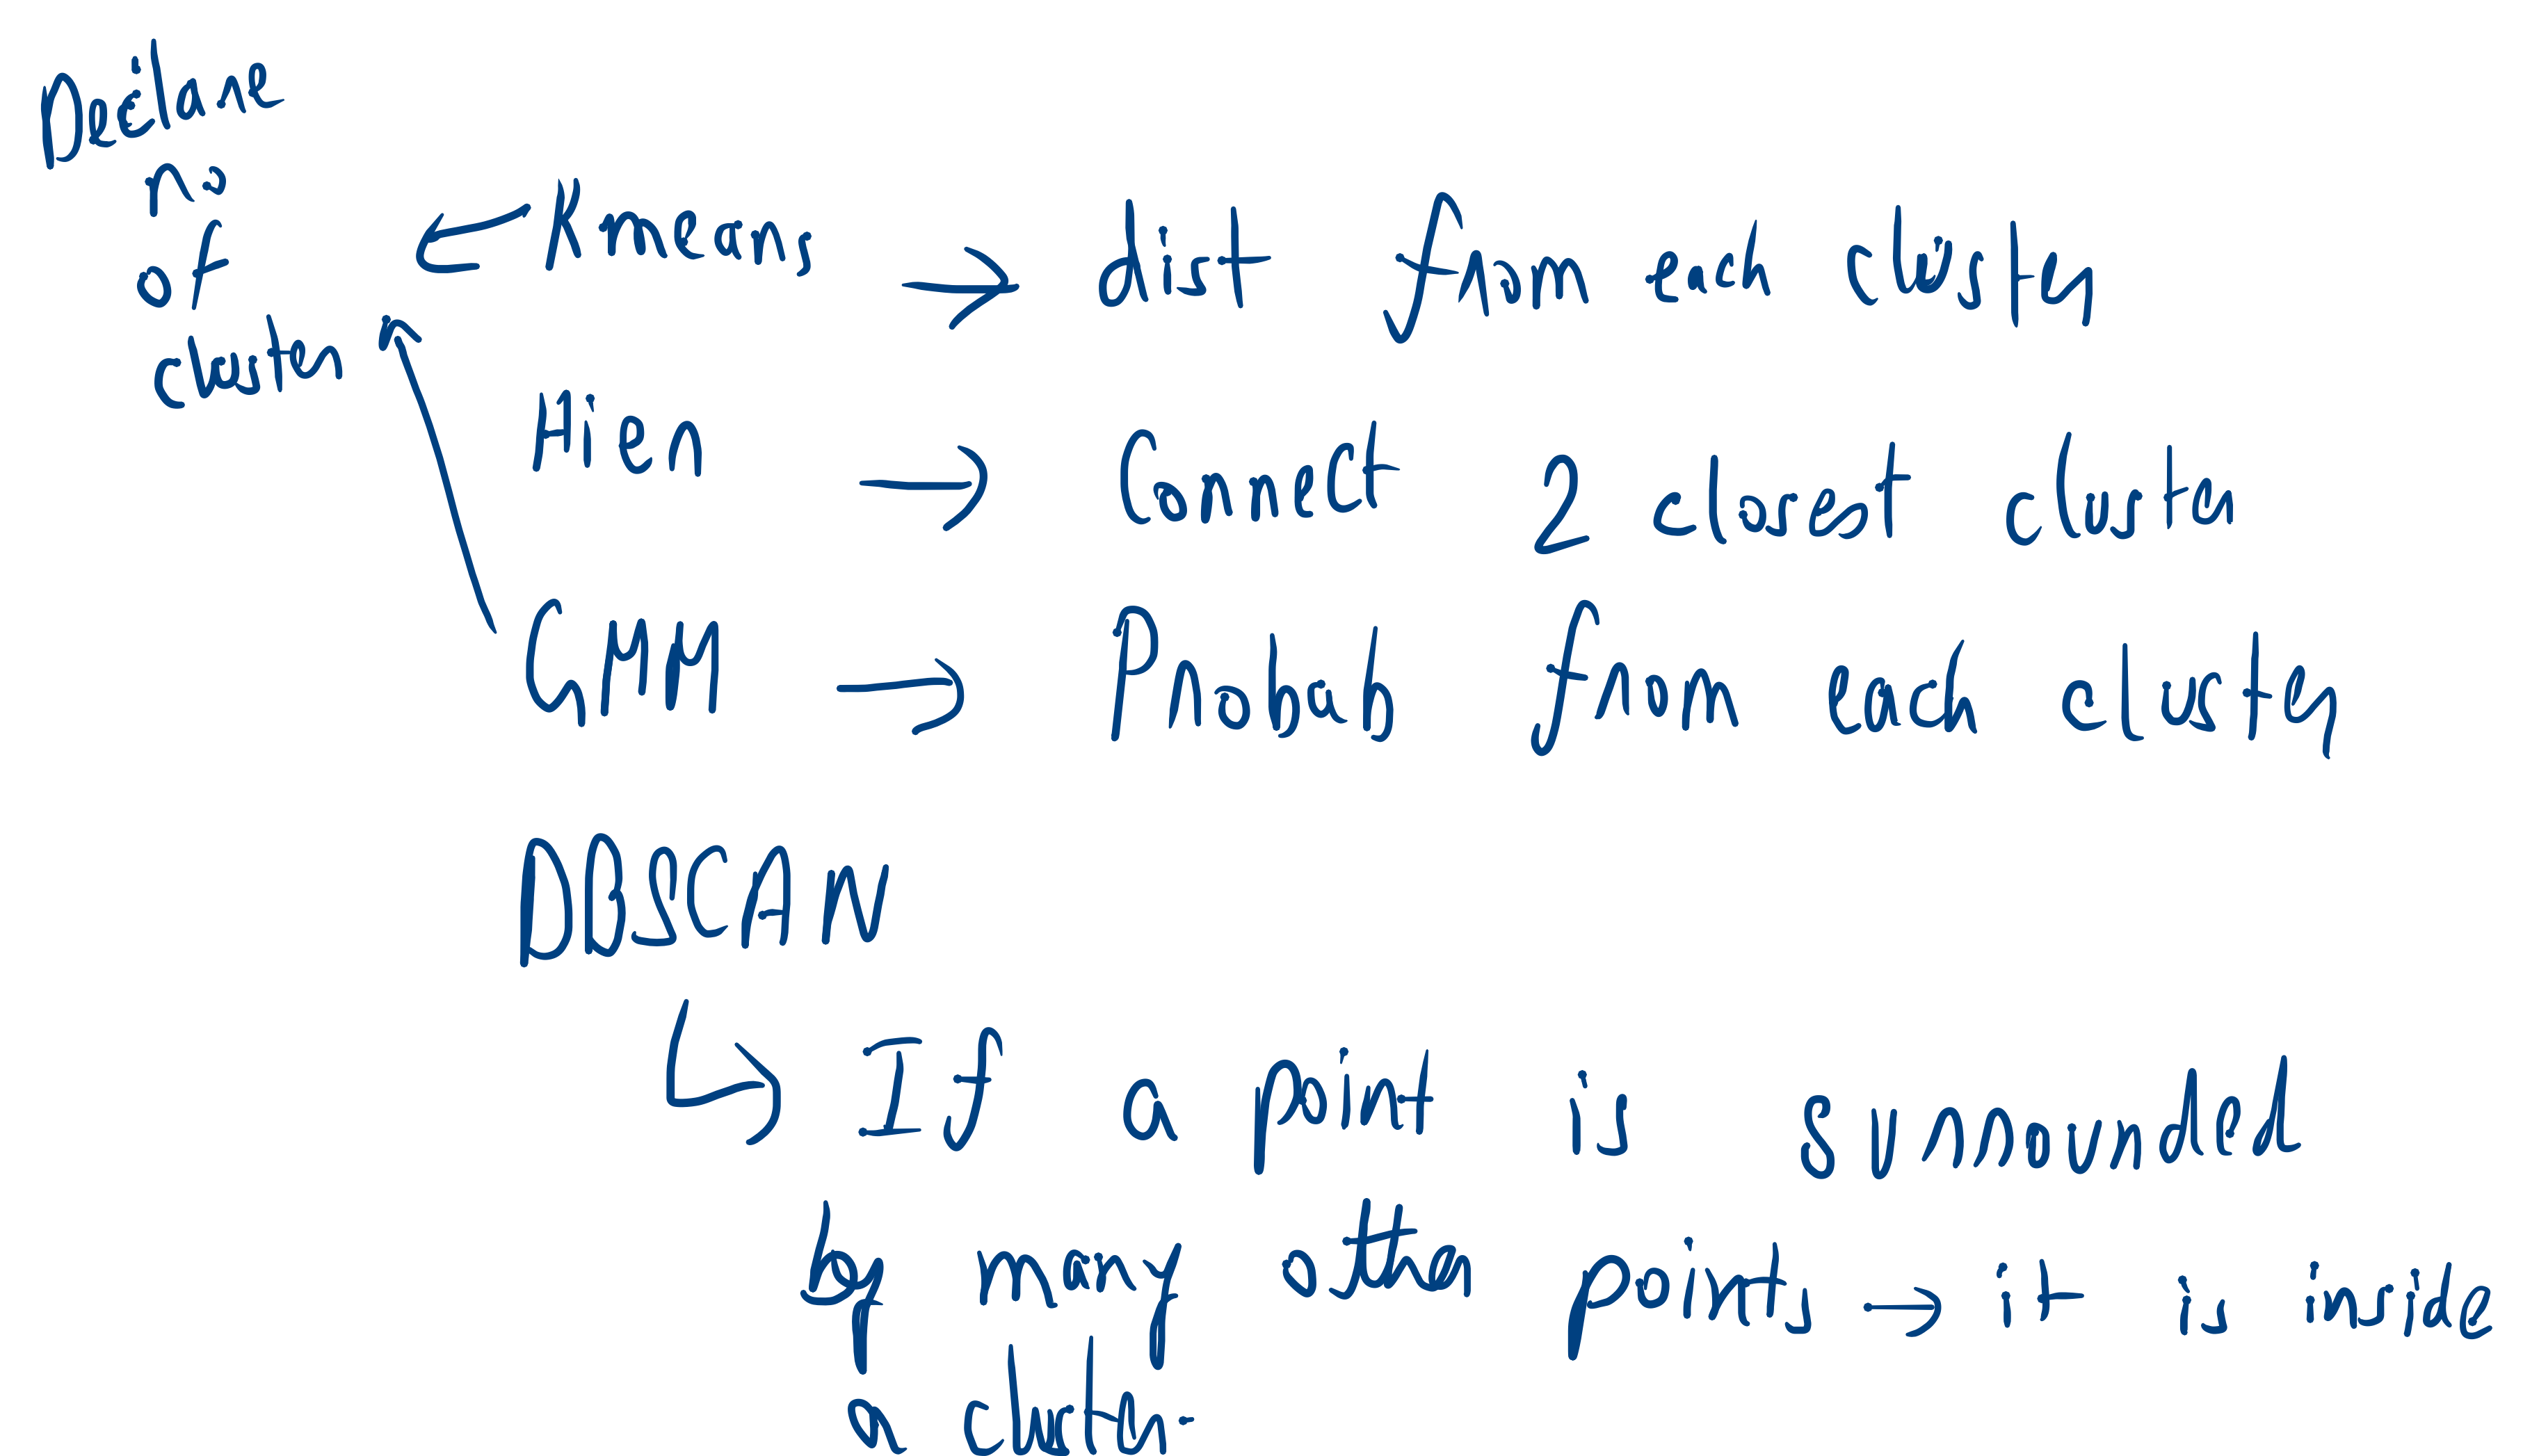 Declare
no
of
cluster
Kmeans → dist from each cluster
Hier → Connect 2 closest cluster
GMM → Probab from each cluster
DBSCAN
↳ If a point is surrounded
by many other points → it is inside
a cluster.